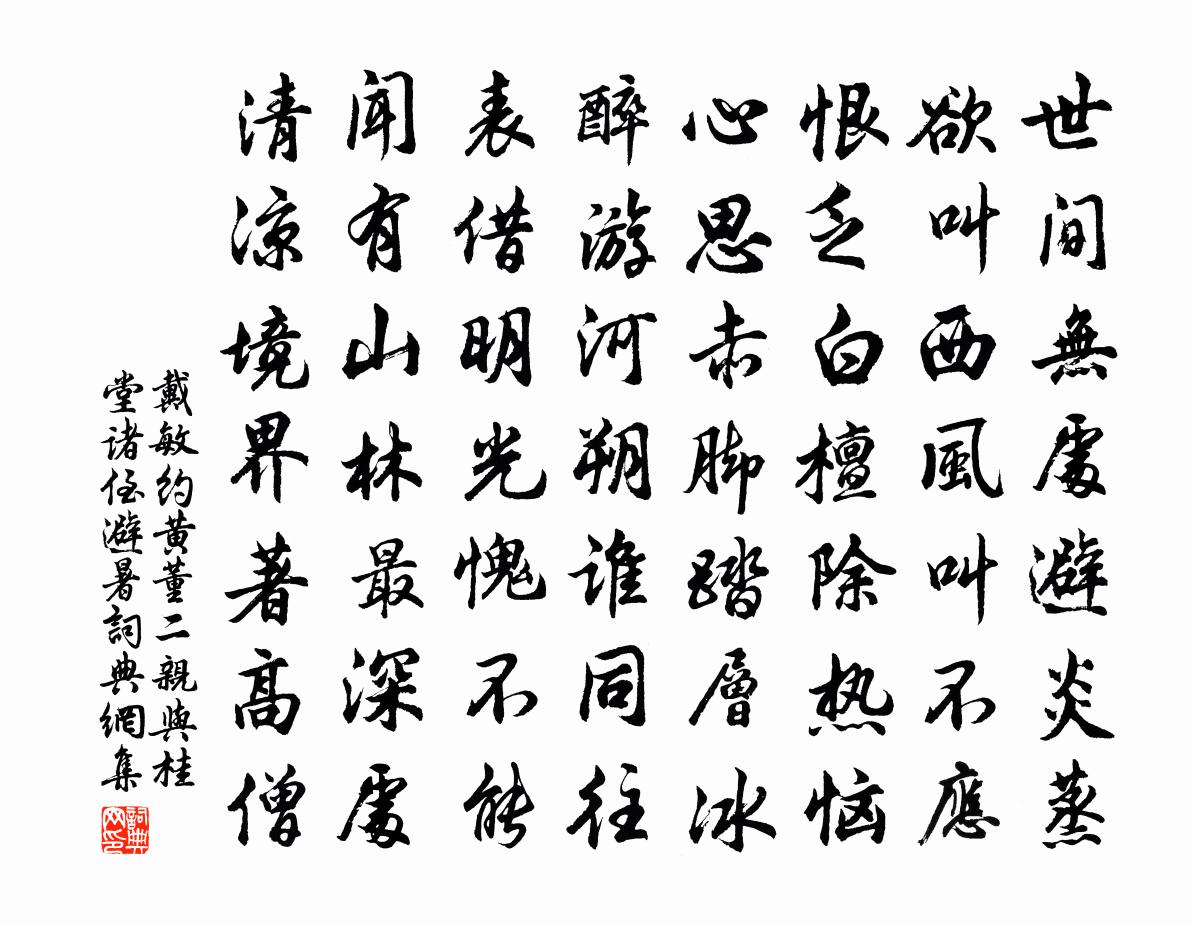 世间無處避炎蒸
欲叫西風叫不應
恨乏白檀除热恼
心思赤脚踏層冰
醉游河朔谁同往
表借明光愧不能
闻有山林最深處
清凉境界著高僧
戴敏约黄董二親與桂
堂诸侄避暑詞典網集
詞典网印